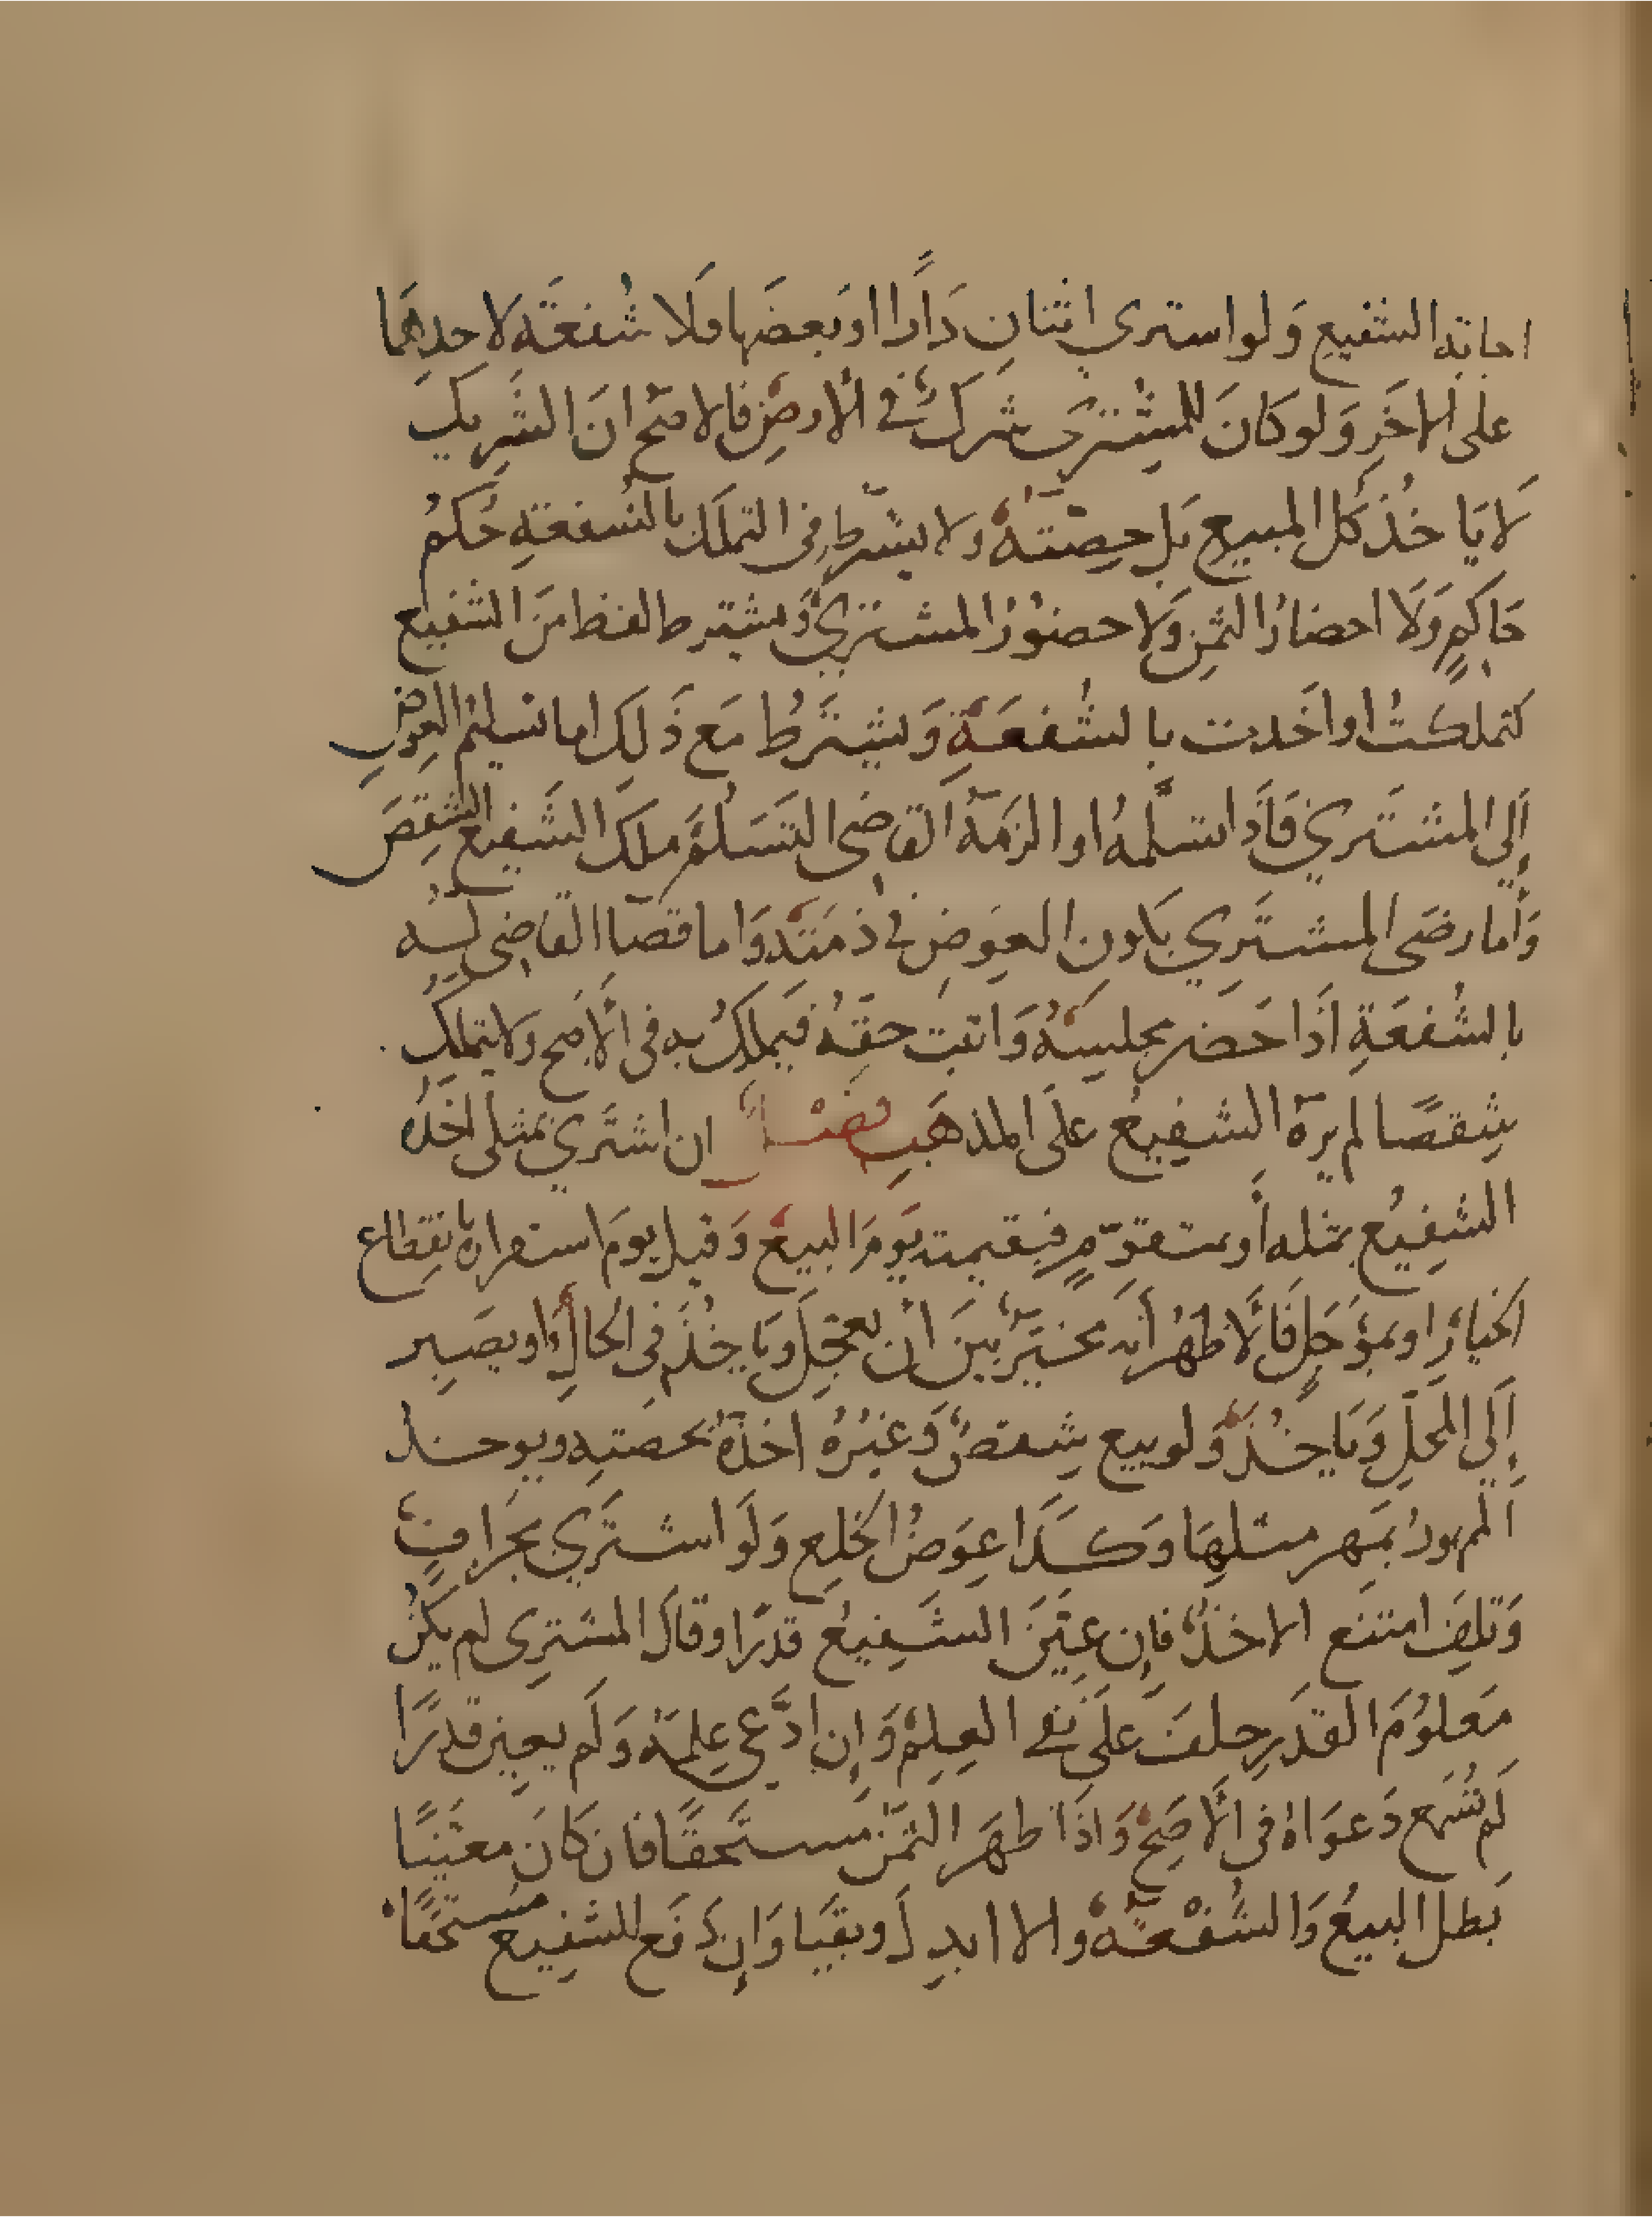 اجابة الشفيع وَلو استرى اثنانِ دَارًا اوبَعضَها فَلا شُفعَة لاحدِهمَا
على الاخَرِ وَلو كانَ للمشْترى شركٌ في الارضِ فالاصَح انَ الشَرِيكَ
لا يَاخُذ كل المبيع بَل حِصّتهُ ولا يشترط في التملك بالشفعةِ حُكمُ
حَاكمٍ وَلا احضارُ الثمنِ وَلا حضوُرُ المشتري وَيشترط لفظ منَ الشفيع
كتملكتُ اواَخَدت بالشُفعَةِ وَيشتَرطُ مَع ذَلِك اما تسليمُ العوضِ
إلى المشتَري فاَدا تسلَّمهُ او الزمَهُ القاضى التسَلمَ ملَك الشَفيع الشِقصَ
وَاما رضَى المشتَرِي بكون العِوَضِ في ذمَتهِ وَاما قضَاا القاضِى لَهُ
بالشُفعَةِ اذَا حَضر مجلِسَهُ وَاثبت حقهُ فيَملكُ به فى الاَصَح ولا يتملك
شِقصًا لم يرهُ الشفِيعُ علَى المذهَبِ فصل ان اشتَري بمثلى اخَذهُ
الشفِيعُ بمثله اَو بمتقوّمٍ فبقيمته يَومَ البيعَ وَقيل يومَ استقراره بانقِطاع
الخيارِ او بمؤَجَلٍ فالاَظهرُ اَنه مخيَّرٌ بينَ ان يعجلَ وَيَاخُذَ في الحَالِ او يصَبِر
إلَى المَحلِ وَيَاخُذَ وَلو بيع شِقصٌ وَغيرُهُ اخذهُ بحصتِهِ ويوخذ
المَمهورُ بمَهر مثلِهَا وَكذَا عِوَضُ الخلعِ وَلَو اشتَري بجُزافٍ
وَتلِفَ امتنع الاخذُ فإن عيَّنَ الشَفِيعُ قدرًا وقالَ المشترِى لم يكن
مَعلوُمَ القدَرِ حلفَ علَى نفي العِلمِ وَإن ادَّعى عِلمَهُ وَلَم يعيِن قدرًا
لَم تُسمَع دَعوَاهُ في الاَصَحِ وَاذَا ظهَر الثمَن مستَحقًا فان كانَ معيَّنًا
بَطل البيعُ وَالشُفعَةُ والا ابدِلَ وبقيَا وَإن دَفَع للشفِيع مستحَقًا